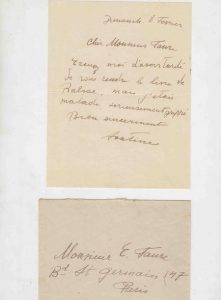 Dimanche 8 Février
Cher Monsieur Faure
Excusez moi d'avoir tardé
le livre de
Balzac, mais j'étais
malade, sérieusement grippé
Bien sincèrement
Soutine
Monsieur E. Faure
Bd St Germain 147
Paris